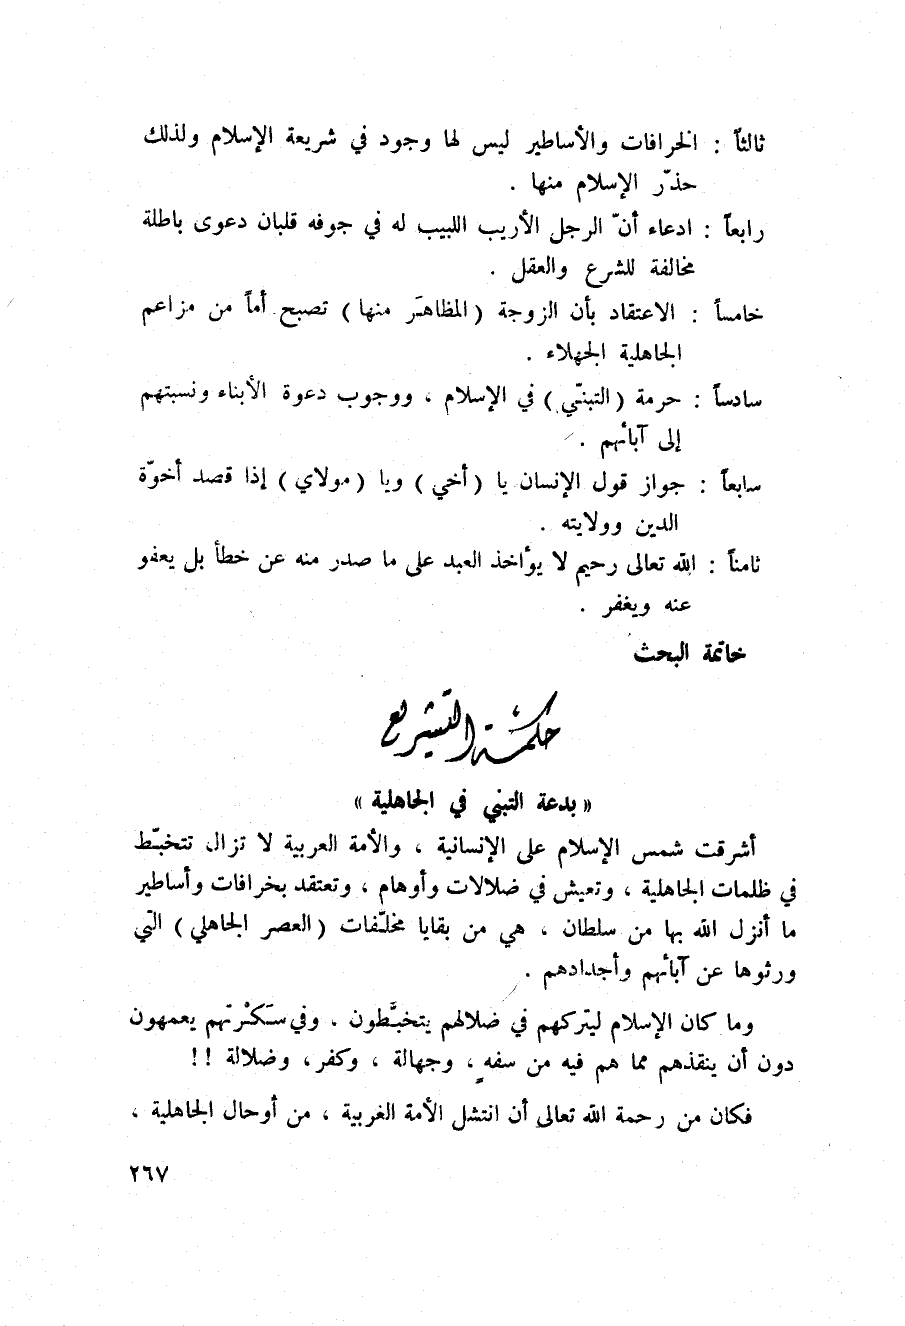 ثالثاً : الخرافات والأساطير ليس لها وجود في شريعة الإسلام ولذلك
حذّر الإسلام منها .
رابعاً : ادعاء أنّ الرجل الأريب اللبيب له في جوفه قلبان دعوى باطلة
مخالفة للشرع والعقل .
خامساً : الاعتقاد بأن الزوجة (المظاهَر منها) تصبح أماً من مزاعم
الجاهلية الجهلاء .
سادساً : حرمة (التبنّي) في الإسلام ، ووجوب دعوة الأبناء ونسبتهم
إلى آبائهم .
سابعاً : جواز قول الإنسان يا (أخي) ويا (مولاي) إذا قصد أخوّة
الدين وولايته .
ثامناً : الله تعالى رحيم لا يؤاخذ العبد على ما صدر منه عن خطأ بل يعفو
عنه ويغفر .
خاتمة البحث
حكمة التشريع
« بدعة التبني في الجاهلية »
أشرقت شمس الإسلام على الإنسانية ، والأمة العربية لا تزال تتخبّط
في ظلمات الجاهلية ، وتعيش في ضلالات وأوهام ، وتعتقد بخرافات وأساطير
ما أنزل الله بها من سلطان ، هي من بقايا مخلّفات (العصر الجاهلي) التي
ورثوها عن آبائهم وأجدادهم .
وما كان الإسلام ليتركهم في ضلالهم يتخبَّطون ، وفي سَكْرتهم يعمهون
دون أن ينقذهم مما هم فيه من سفهٍ ، وجهالة ، وكفر ، وضلالة !!
فكان من رحمة الله تعالى أن انتشل الأمة الغربية ، من أوحال الجاهلية ،
٢٦٧